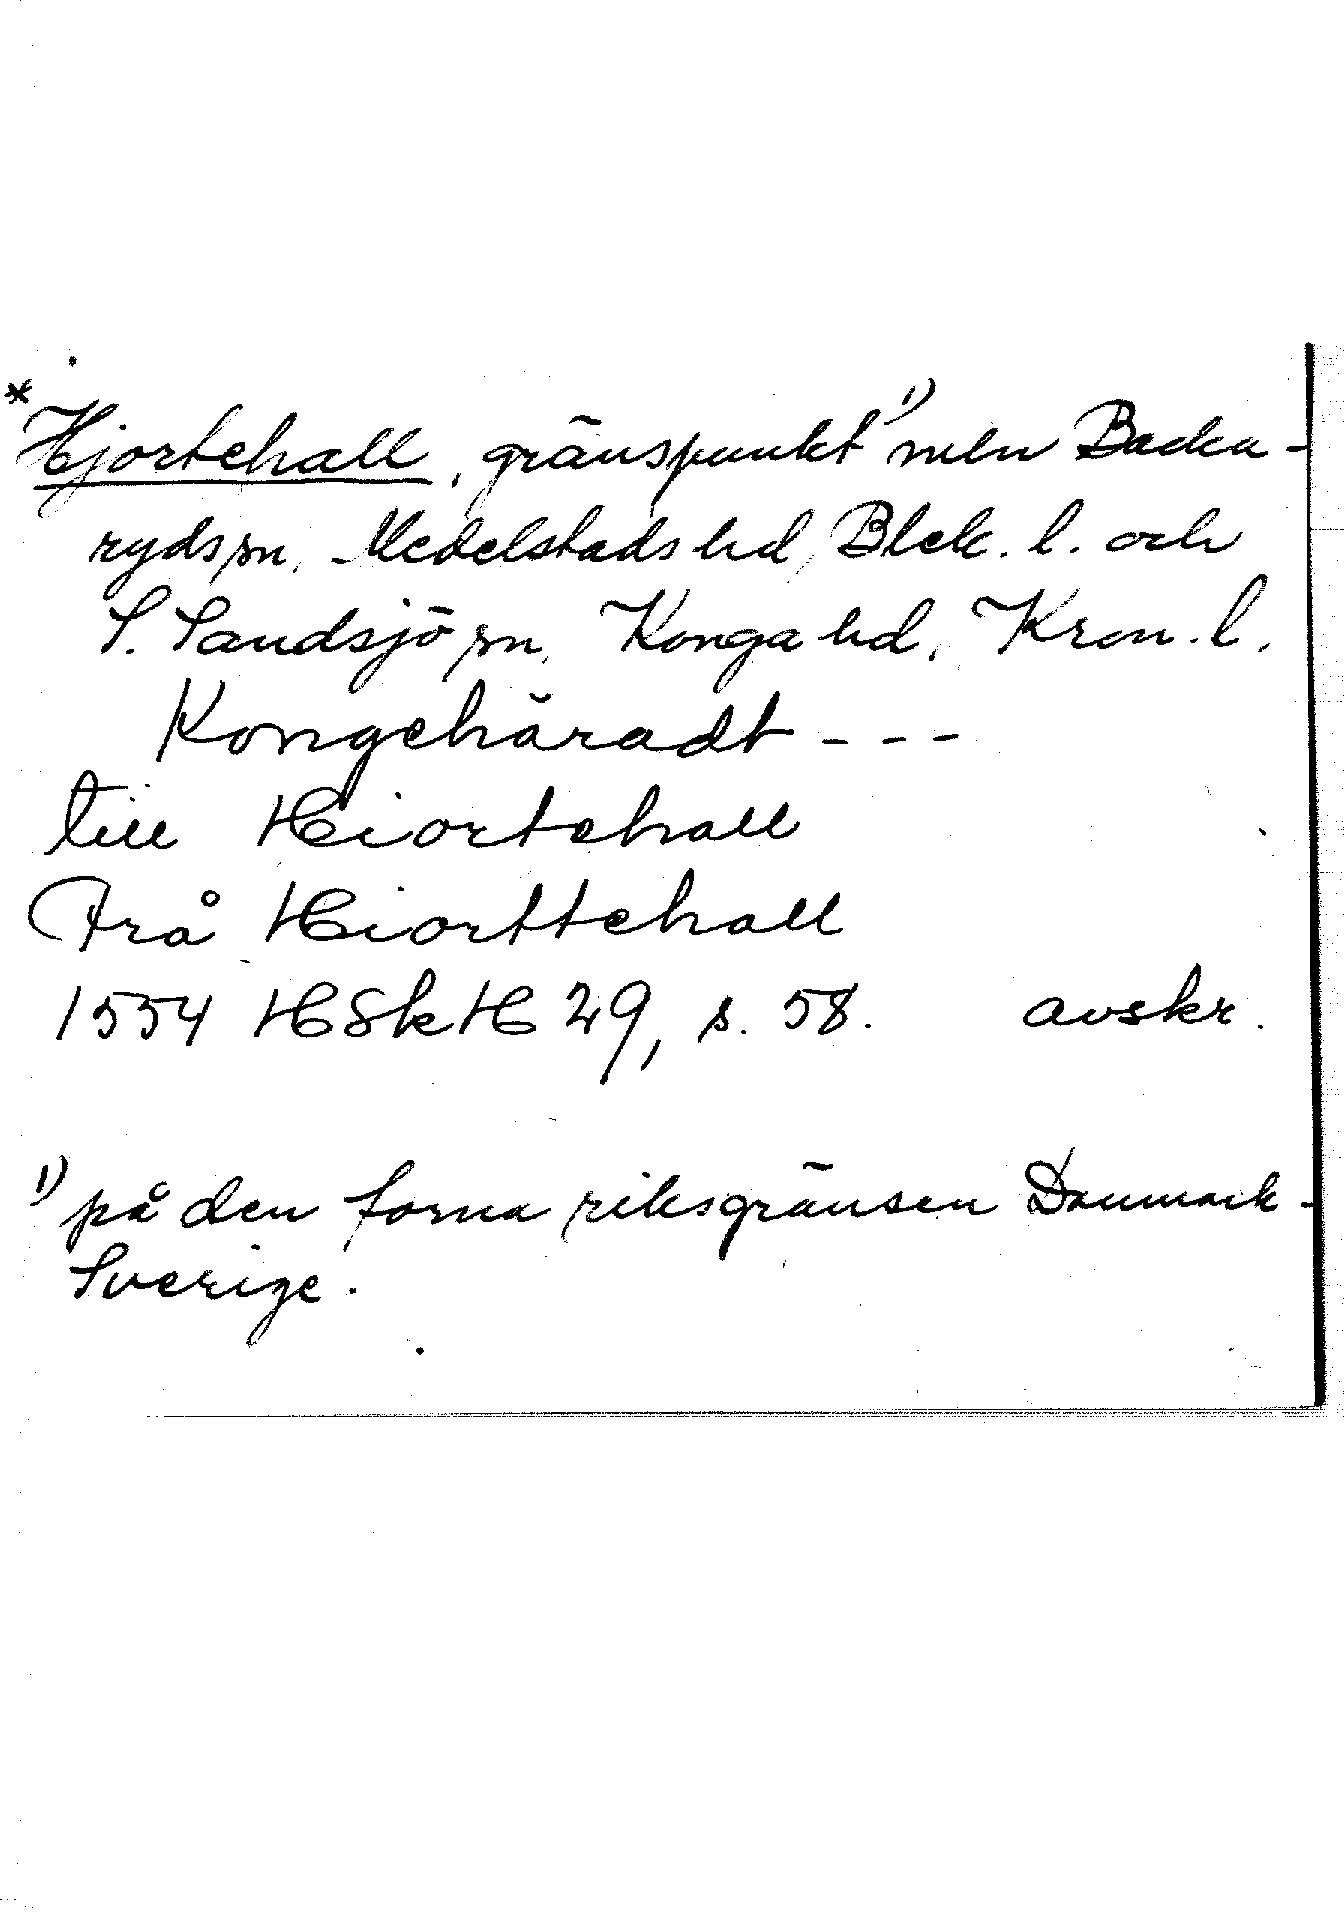 *Hjortehall, gränspunkt 1) mln Backa-
ryds sn, Medelstads hd, Blek. l. och
S. Sandsjö sn, Konga hd, Kron. l.
Kongehäradt - - -
till Hiortehall
Frå Hiorttehall
1554 HSkH 29, s. 58. avskr.
1) på den forna riksgränsen Danmark-
Sverige.